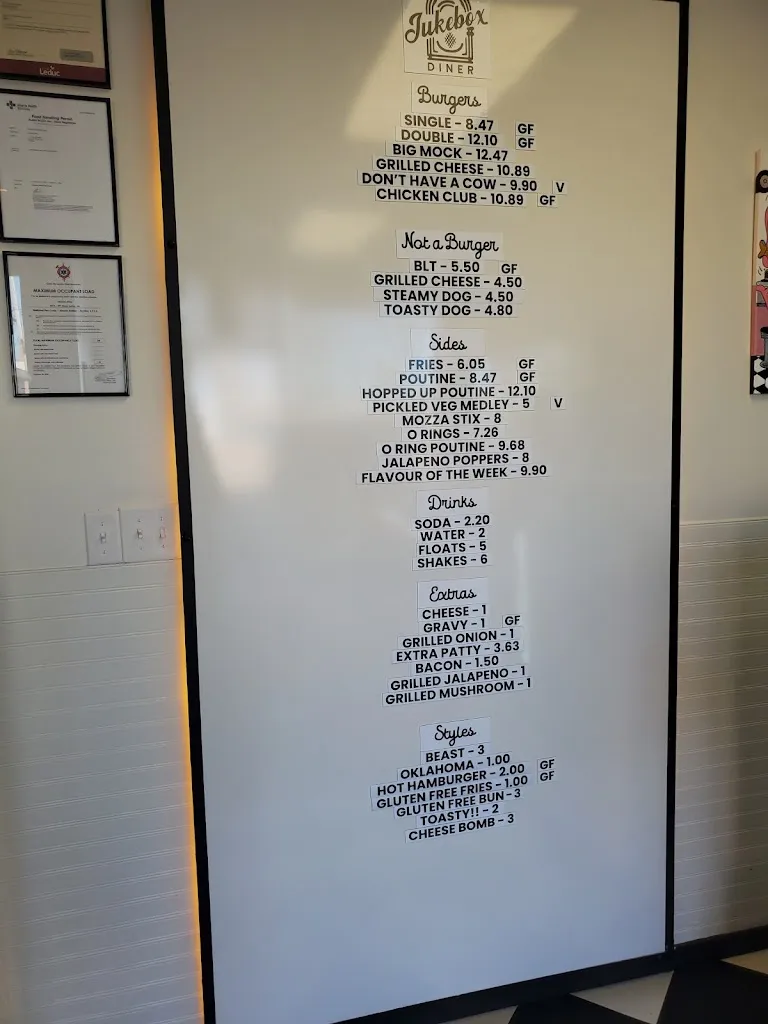 Leduc
Food Handling Permit
MAXIMUM OCCUPANT LOAD
Jukebox
DINER
Burgers
SINGLE - 8.47 GF
DOUBLE - 12.10 GF
BIG MOCK - 12.47
GRILLED CHEESE - 10.89
DON'T HAVE A COW - 9.90 V
CHICKEN CLUB - 10.89 GF
Not a Burger
BLT - 5.50 GF
GRILLED CHEESE - 4.50
STEAMY DOG - 4.50
TOASTY DOG - 4.80
Sides
FRIES - 6.05 GF
POUTINE - 8.47 GF
HOPPED UP POUTINE - 12.10
PICKLED VEG MEDLEY - 5 V
MOZZA STIX - 8
O RINGS - 7.26
O RING POUTINE - 9.68
JALAPENO POPPERS - 8
FLAVOUR OF THE WEEK - 9.90
Drinks
SODA - 2.20
WATER - 2
FLOATS - 5
SHAKES - 6
Extras
CHEESE - 1
GRAVY - 1 GF
GRILLED ONION - 1
EXTRA PATTY - 3.63
BACON - 1.50
GRILLED JALAPENO - 1
GRILLED MUSHROOM - 1
Styles
BEAST - 3
OKLAHOMA - 1.00
HOT HAMBURGER - 2.00 GF
GLUTEN FREE FRIES - 1.00 GF
GLUTEN FREE BUN - 3
TOASTY!! - 2
CHEESE BOMB - 3